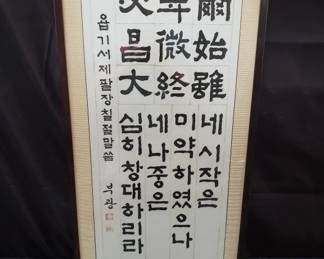 爾始雖
卑微終
昌大
네시작은
미약하였으나
네나중은
심히창대하리라
욥기서제팔장칠절말씀